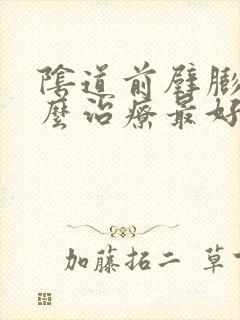 陰道前壁膨
麼治療最好
加藤拓二 草